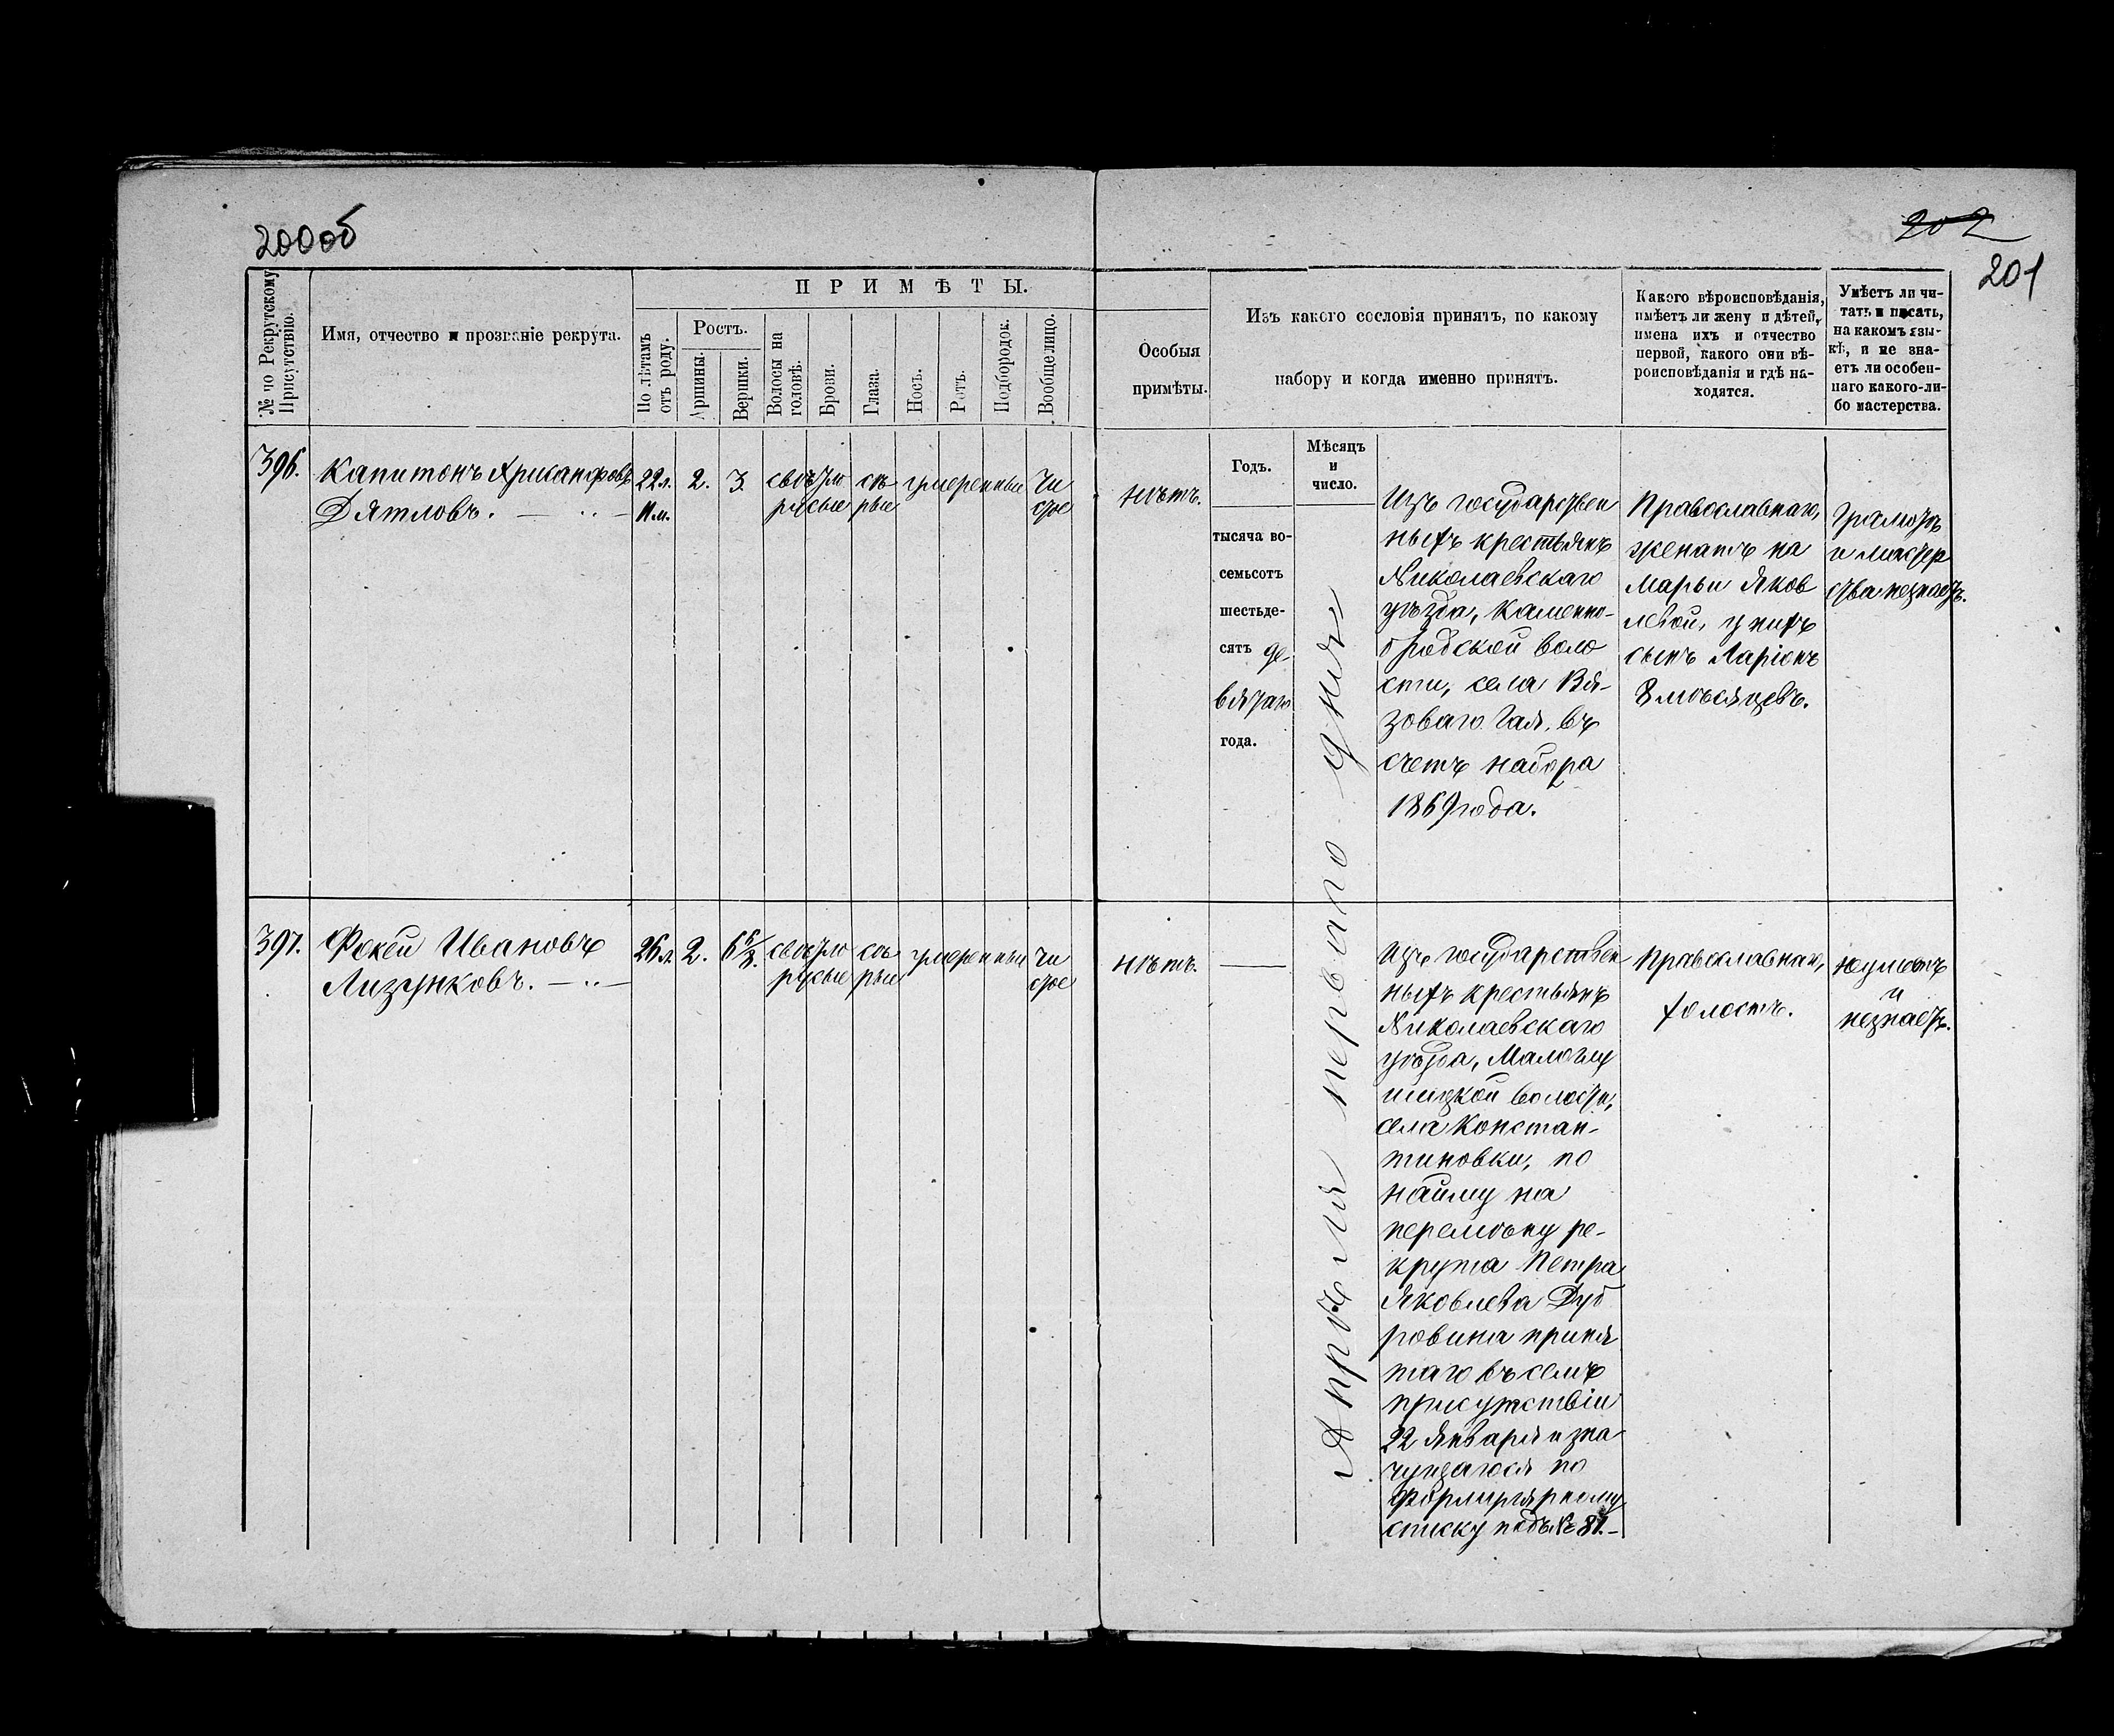 200об
202
201
№ по Рекрутскому
Присутствію.
Имя, отчество и прозваніе рекрута.
ПРИМѢТЫ.
По лѣтамъ
отъ роду.
Ростъ.
Аршины.
Вершки.
Волосы на
головѣ.
Брови.
Глаза.
Носъ.
Ротъ.
Подбородок.
Вообще лицо.
Особыя
примѣты.
Изъ какого сословія принятъ, по какому
набору и когда именно принятъ.
Какого вѣроисповѣданія,
имѣетъ ли жену и дѣтей,
имена ихъ и отчество
первой, какого они вѣ-
роисповѣданія и гдѣ на-
ходятся.
Умѣетъ ли чи-
тать и писать,
на какомъ язы-
кѣ, и не зна-
етъ ли особен-
наго какого-ли-
бо мастерства.
Годъ.
Мѣсяцъ
и
число.
тысяча во-
семьсотъ
шестьде-
сятъ де-
вятаго
года.
Апрѣля перваго дня
396.
Капитонъ Хрисанфовъ
Дятловъ.
22 л.
11 м.
2.
3.
свѣтло
русые
сѣ
рые
умеренные
чи
стое
нѣтъ.
Изъ государствен
ныхъ крестьянъ
Николаевскаго
уѣзда, Каменно-
бродской воло
сти, села Вя-
зоваго Гая, въ
счетъ набора
1869 года.
Православнаго,
женатъ на
Марьи Яков
левой, у нихъ
сынъ Ларіонъ
8 мѣсяцевъ.
Грамотѣ
и мастер
ства незнаетъ.
397.
Фокей Ивановъ
Лизунковъ.
26 л.
2.
6 5/8.
свѣтло
русые
сѣ
рые
умеренные
чи
стое
нѣтъ.
Изъ государствен
ныхъ крестьянъ
Николаевскаго
уѣзда, Малоглу
шицкой волости,
села Констан-
тиновки, по
найму на
перемѣну ре-
крута Петра
Яковлева Дуб
ровина приня
таго въ семъ
присутствіи
22 Января и зна
чущагося по
формулярному
списку подъ № 81.
Православнаго,
холостъ.
неумеетъ
и
незнаетъ.